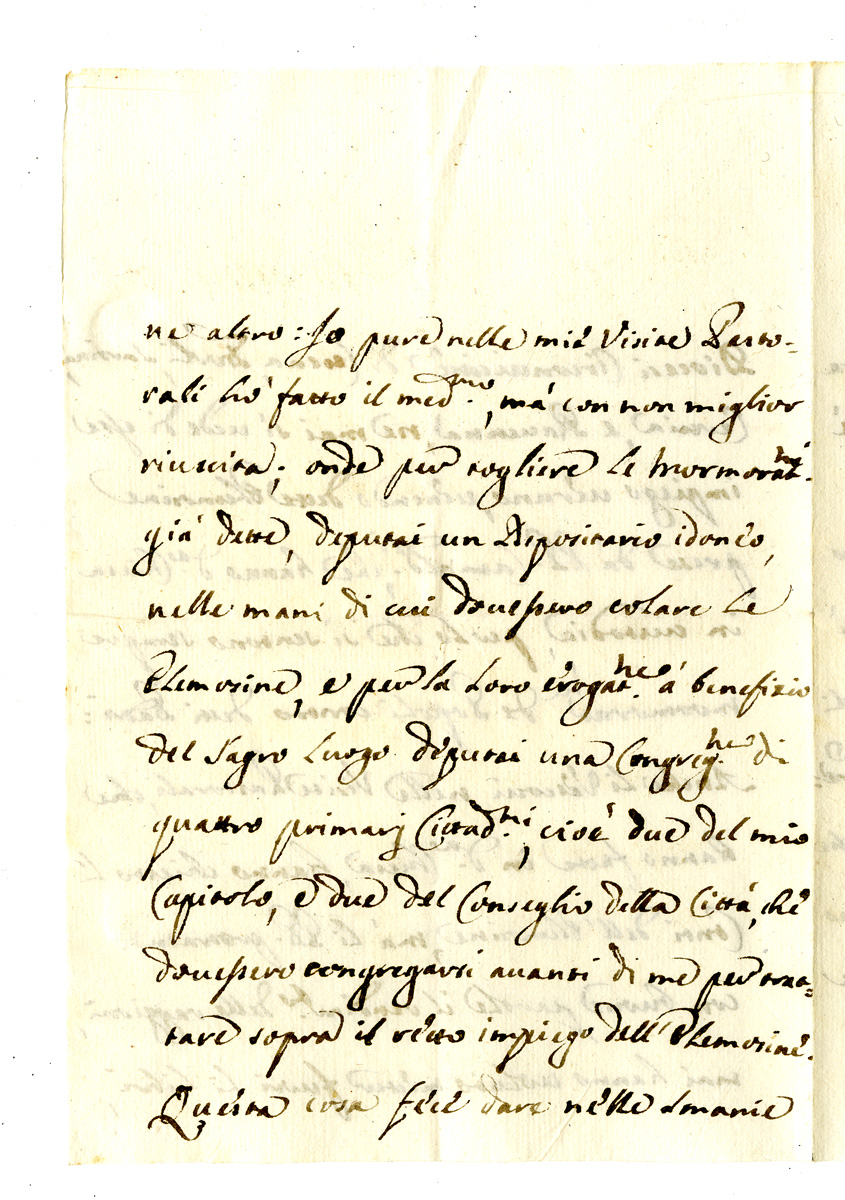 ne altro: Io pure nelle mie Visite Pasto=
rali hò fatto il med.mo, mà con non miglior
riuscita; onde per togliere le mormorat.ni
già dette, deputai un Depositario idoneo,
nelle mani di cui dovessero colare le
Elemosine, e per la loro erogat.ne à benefizio
del Sagro Luogo deputai una Congreg.ne di
quattro primarj Cittad.ni, cioè due del mio
Capitolo, e due del Conseglio della Città, che
dovessero congregarsi avanti di me per trat=
tare sopra il retto impiego dell' Elemosine.
Questa cosa fece dare nelle smanie